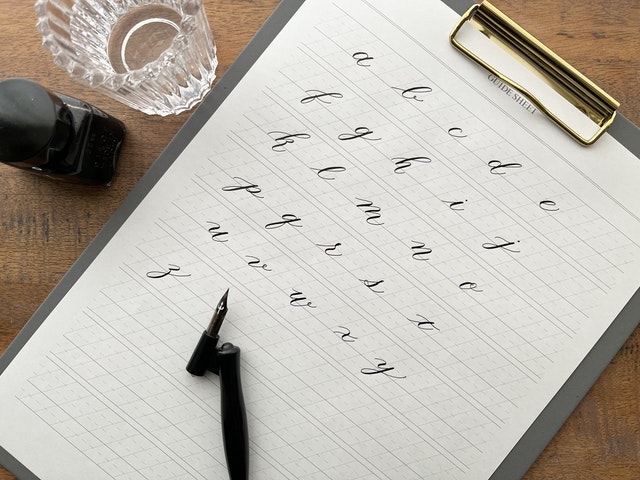 GUIDE SHEET
a b c d e
f g h i j
k l m n o
p q r s t
u v w x y
z